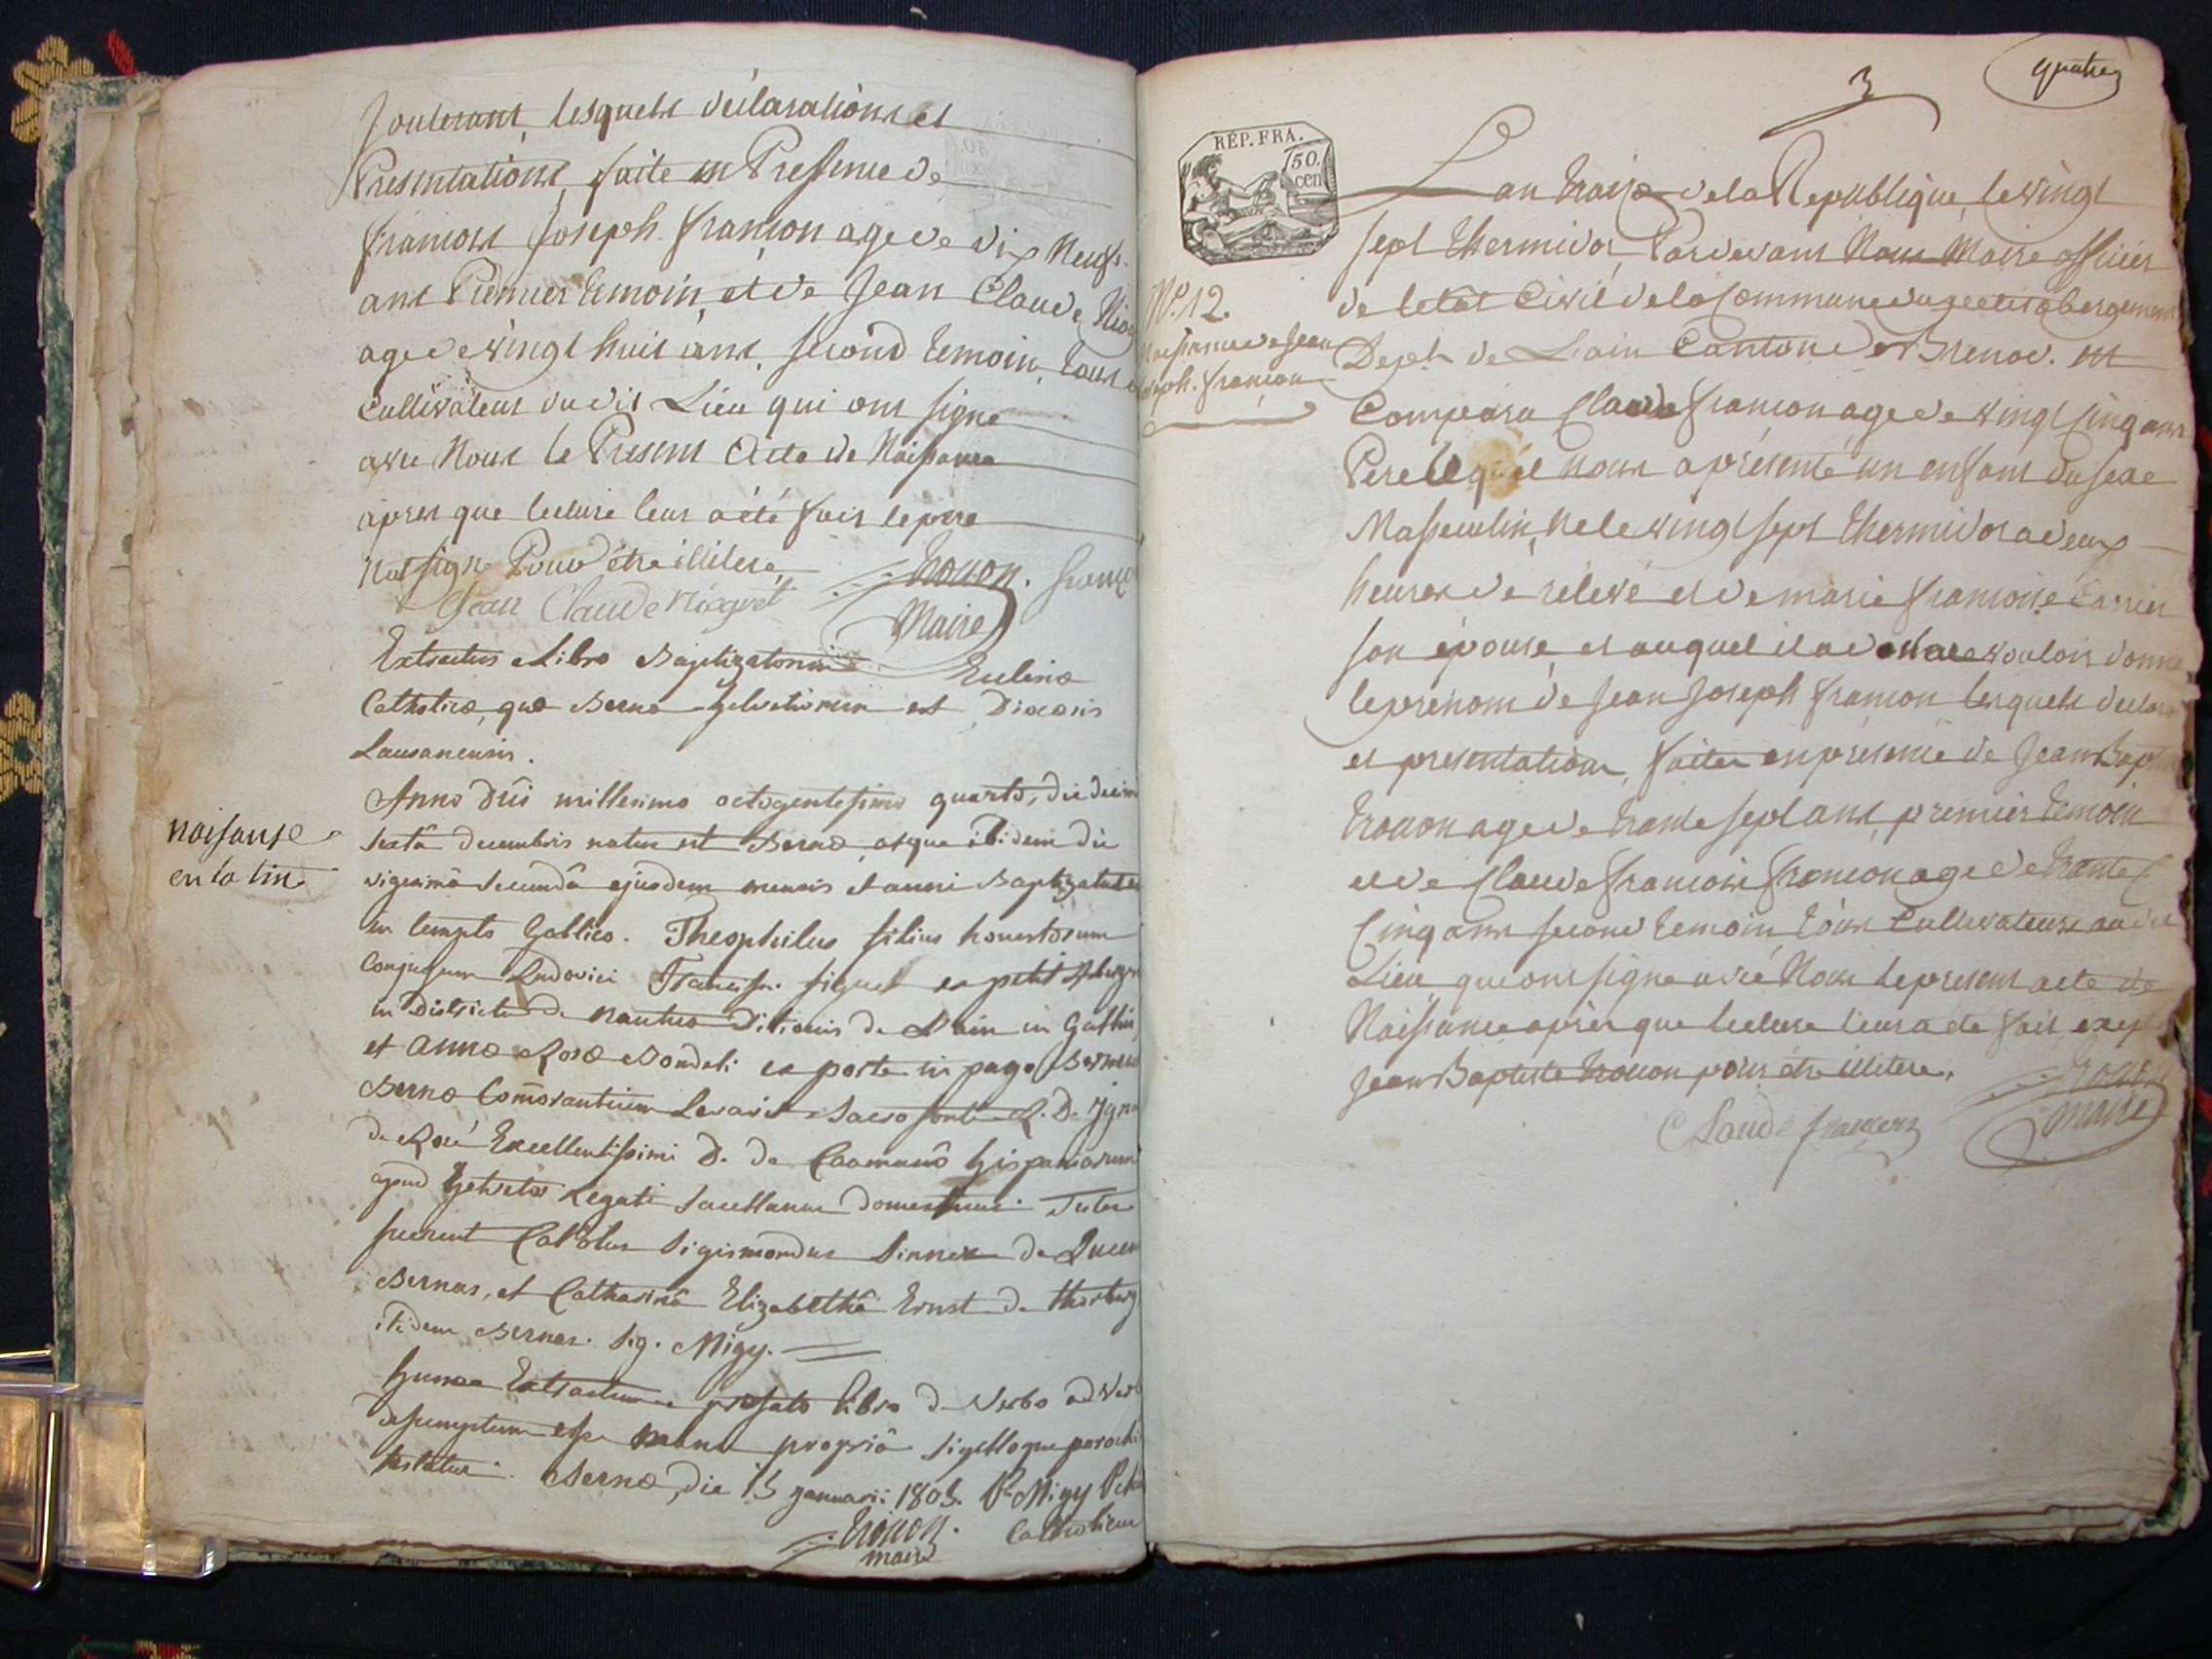 Jouterant, lesquels déclarations et
Presentations, faite en Pressence de
françois Joseph françon age de dix Neuf
ans Premier temoin, et de Jean Claude
age de vingt huit ans, second temoin, tous
Cultivateur du dit Lieu qui ont signe
avec Nous le Present Acte de Naissance
apres que lecture leur a été fait le père
Jean Claude Nicquet
trouon.
Maire
Extractus Libro Baptizatorum Eclesiæ
Catholicæ, quæ Bernæ Helvetiorum est Diocesis
Lausanensis.
naisanse
en latin
Anno Dñi millesimo octogentesimo quarto, die decima
sexta decembris natus est Bernæ, atque ibidem die
vigesimâ secundâ ejusdem mensis et anni Baptizatus est
in templo Gallico. Theophilus filius honestorum
Conjugum Ludovici Francisci figuet ex petit Aberg
in Districtu de Nantua Ditionis de L'ain in Galliis,
et Annæ Rosæ Bondeli ex parte in pago Bern
Bernæ Comorantium Levavit e Sacro fonte R. D. Ign
de Roxé Excellentissimi D. de Caamano hispaniarum
apud Helvetos Legati Sacellanus domesticus. Testes
fuerunt Carolus Sigismondus Sinner de
Bernas, et Catharinâ Elizabethâ Ernst de thorberg
itidem Bernas. Sig. Migy.
hunc Extractum e præfato libro de Verbo ad Verb
desumptum esse manu propriâ sigilloque parochi
testatur. Bernæ, die 15 januarii 1805. P. Migy
Catholicus
trouon.
maire
3
quatre
RÉP. FRA.
50.
cen
N.º 12.
Naissance de Jean
Joseph. françon
L'an treize de la Republique, le vingt
sept thermidor, Pardevant Nous Maire officier
de letat Civil de la Commune du petit abergement
Dept. de L'ain Canton de Brenod. est
Comparu Claude françon age de vingt Cinq ans
Pere lequel nous a présenté un enfant du sexe
Masseulin, ne le vingt sept thermidor a deux
heures de relevé et de marie françoise Carrier
son épouse, et auquel il a declare vouloir donne
le prénom de Jean Joseph françon lesquels declara
et presentation, faites en presence de Jean Baptiste
trouon age de trante sept ans, premier temoin
et de Claude françois françon age de trante
Cinq ans second temoin, tous Cultivateurs au dit
Lieu qui ont signe avec Nous le present acte de
Naissance après que lecture leur a ete fait, exepte
Jean Baptiste trouon pour être illitere.
trouon
Claude francon
maire